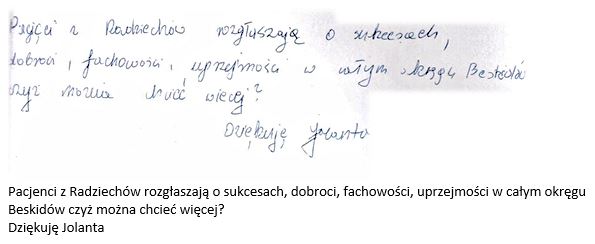 Pacjęci z Radziechów rozgłuszają o sukcesach,
dobroci, fachowości, uprzejmości w całym okręgu Beskidów
czyż można chcieć więcej?
Dziękuję Jolanta
Pacjenci z Radziechów rozgłaszają o sukcesach, dobroci, fachowości, uprzejmości w całym okręgu
Beskidów czyż można chcieć więcej?
Dziękuję Jolanta